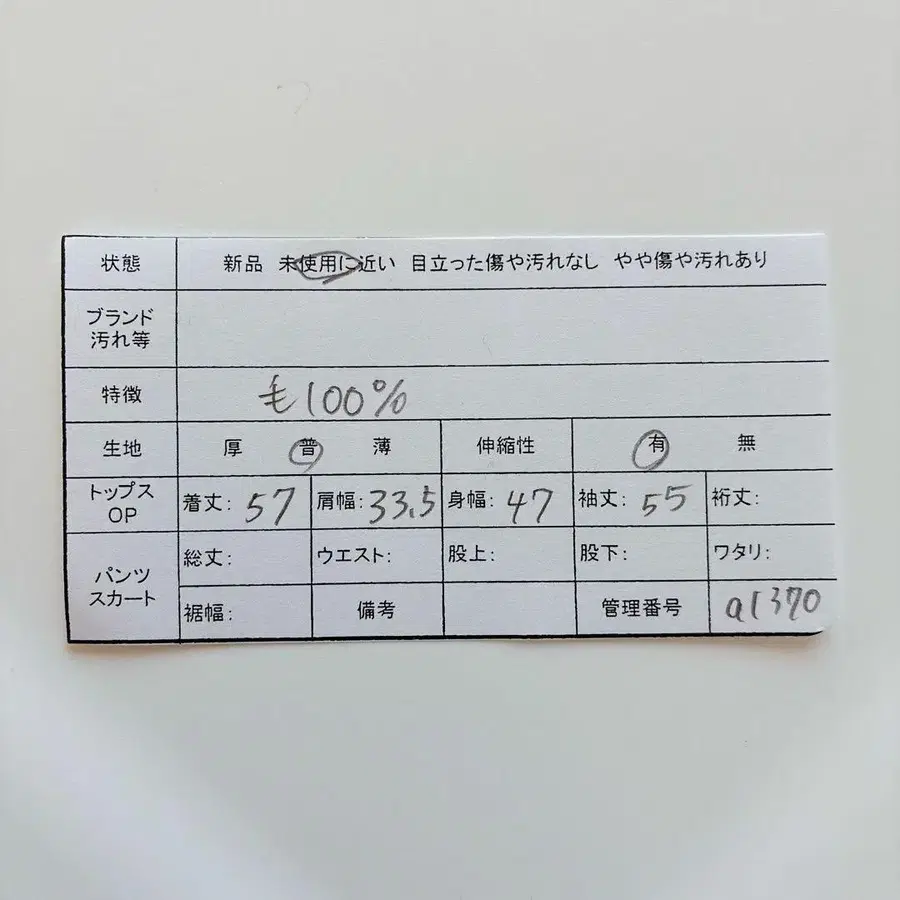 状態 新品 未使用に近い 目立った傷や汚れなし やや傷や汚れあり
ブランド
汚れ等
特徴 毛100%
生地 厚 普 薄 伸縮性 有 無
トップス
OP
着丈: 57 肩幅: 33.5 身幅: 47 袖丈: 55 裄丈:
パンツ
スカート
総丈: ウエスト: 股上: 股下: ワタリ:
裾幅: 備考 管理番号 a1370